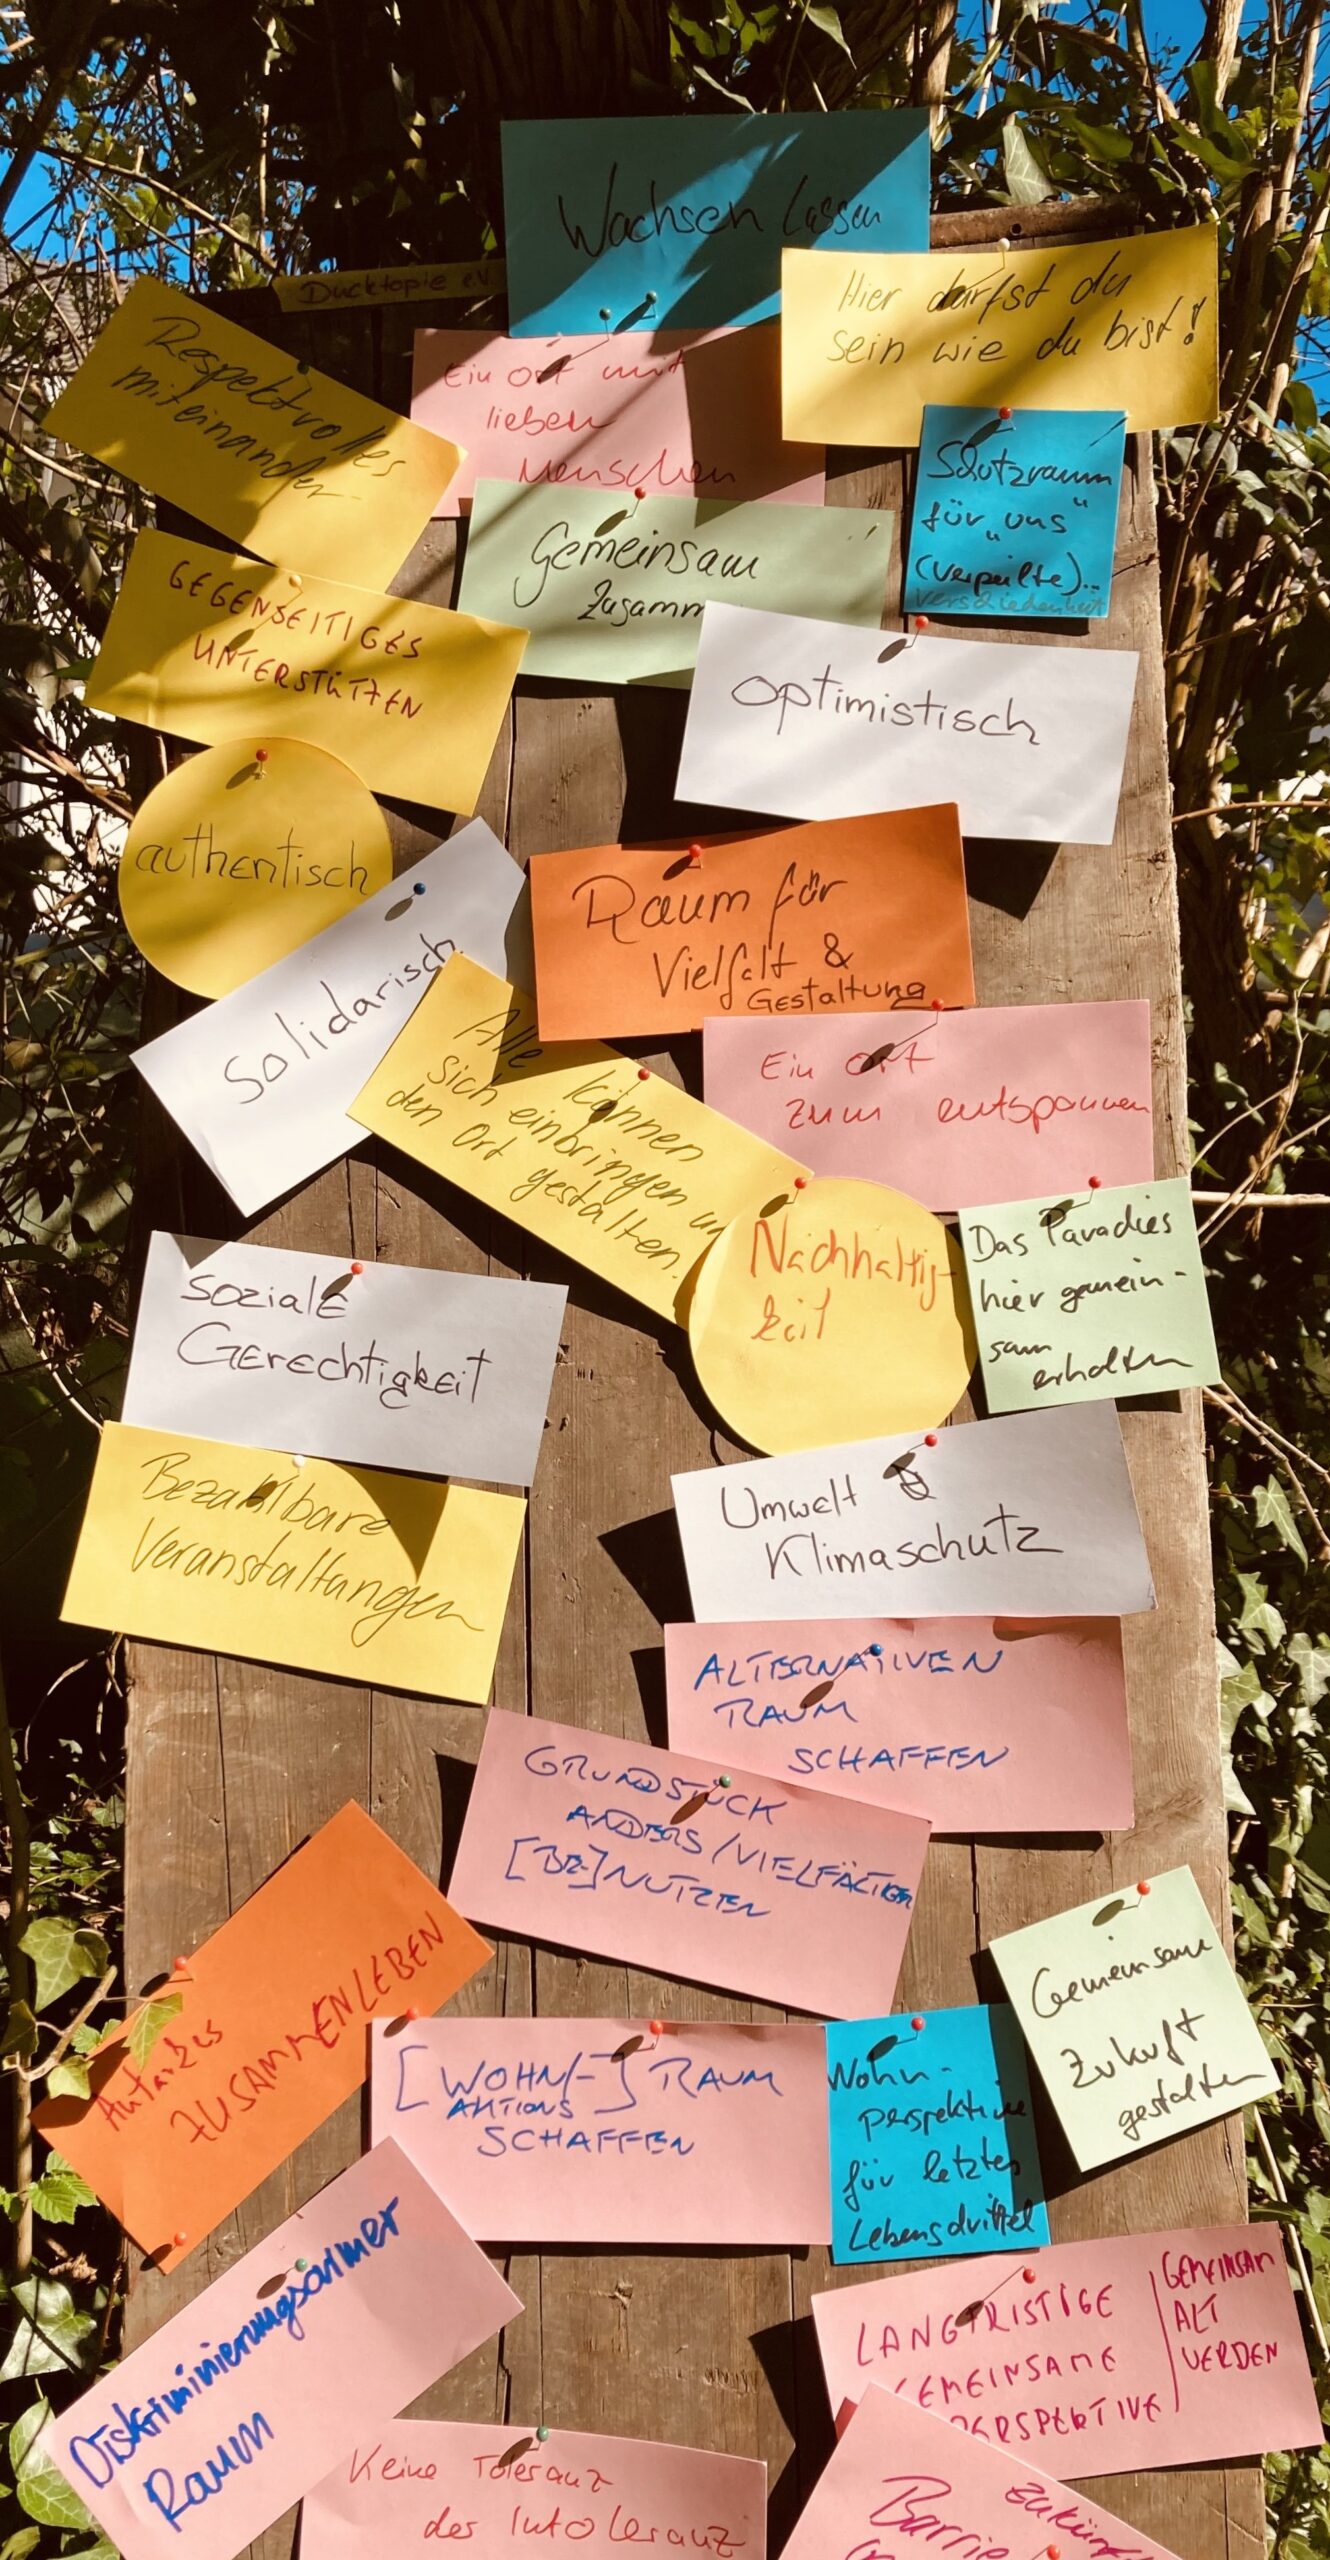 Wachsen lassen
Ducktopie e.V.
Hier darfst du
sein wie du bist!
Respektvolles
miteinander
Ein Ort mit
lieben
Menschen
Schutzraum
für „uns“
(verpeilte)...
Verschiedenheit
Gemeinsam
Zusamm
GEGENSEITIGES
UNTERSTÜTZEN
optimistisch
authentisch
Raum für
Vielfalt &
Gestaltung
Solidarisch
Alle können
sich einbringen un
den Ort gestalten.
Ein Ort
zum entspannen
Nachhaltig-
keit
Das Paradies
hier gemein-
sam
erhalten
Soziale
Gerechtigkeit
Bezahlbare
Veranstaltungen
Umwelt &
Klimaschutz
ALTERNATIVEN
RAUM
SCHAFFEN
GRUNDSTÜCK
ANDERS/VIELFÄLTIGER
[BE-]NUTZEN
ZUSAMMENLEBEN
Gemeinsame
Zukuft
gestalten
[WOHN/-] RAUM
AKTIONS
SCHAFFEN
Wohn-
perspektive
für letztes
Lebensdrittel
Diskriminierungsarmer
Raum
LANGFRISTIGE
GEMEINSAME
PERSPEKTIVE
GEMEINSAM
ALT
WERDEN
Keine Toleranz
der Intoleranz
Zukünf
Barrie